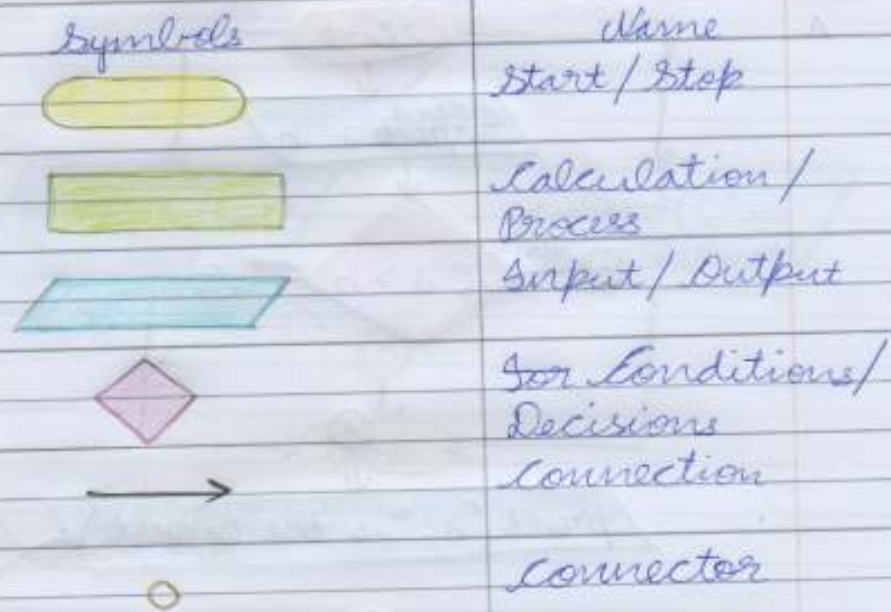 Symbols Name
Start / Stop
Calculation /
Process
Input / Output
For Conditions /
Decisions
Connection
Connector